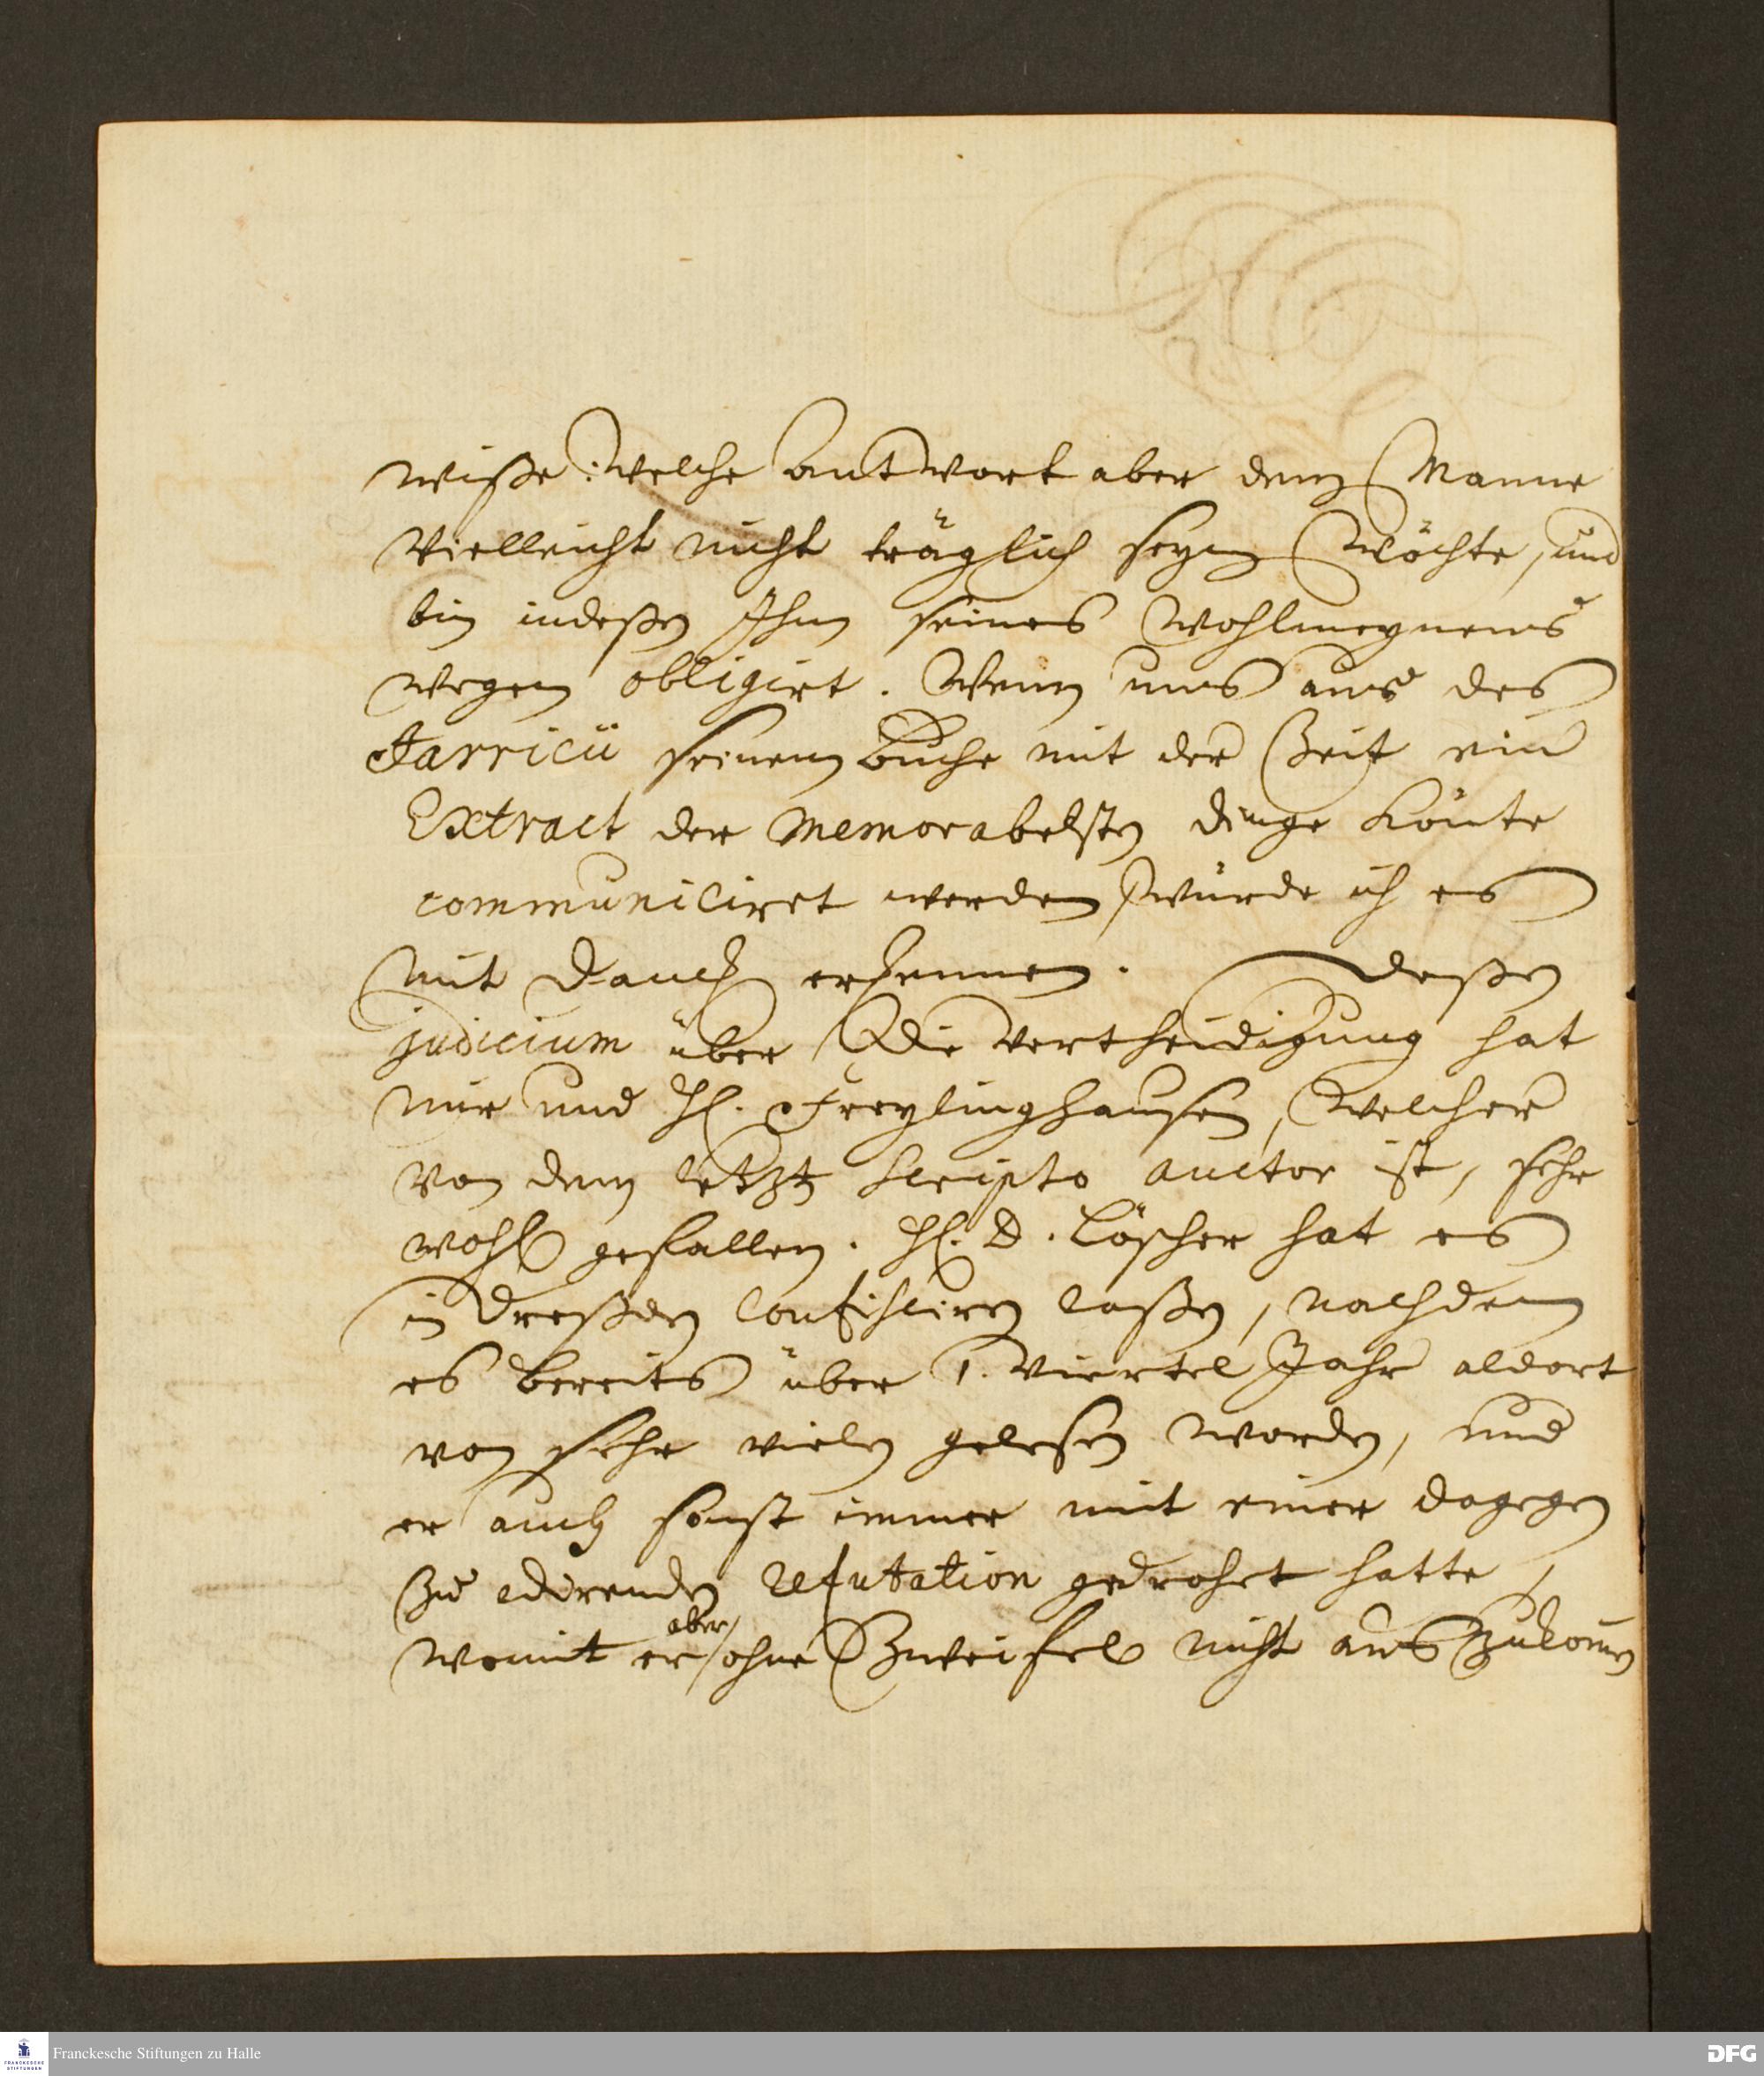 wiße: welche Antwort aber dem Manne
vielleicht nicht träglich seyn möchte, und
bin indeßen Ihm seines Wohlmeynens
wegen obligirt. Wenn uns aus des
Jarricii seinem Buche mit der Zeit ein
Extract der memorabelsten dinge könte
communiciret werden, würde ich es
mit Danck erkennen. Deßen
judicium über Die Vertheidigung hat
mir und H. Freylinghausen, welcher
von dem letzt scripto auctor ist, sehr
wohl gefallen. H. D. Löscher hat es
in Dreßden confisciren laßen, nachdem
es bereits über 1. viertel Jahr aldort
von sehr vielen gelesen worden, und
er auch sonst immer mit einer dagegen
zu edirenden refutation gedrohet hatte,
womit er aber ohne Zweifel nicht auszukommen
Franckesche Stiftungen zu Halle
FRANCKESCHE STIFTUNGEN
DFG